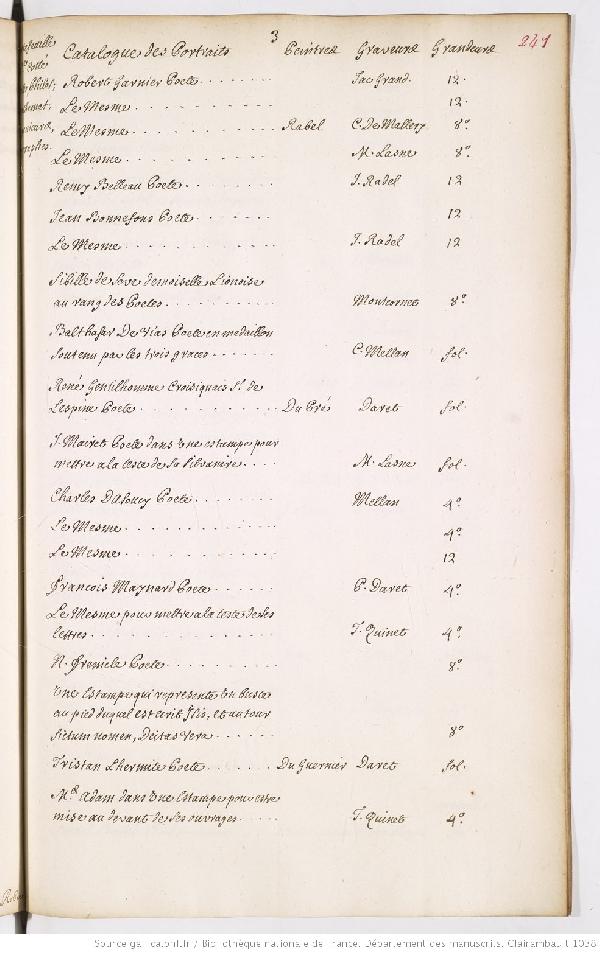 3
241
Catalogue des Portraits Peintres Graveurs Grandeurs
Robert Garnier Poete Jac Grand. 12.
Le Mesme 12.
Le Mesme Rabel C. De Mallery 8º.
Le Mesme M. Lasne 8º.
Remy Belleau Poete J. Radel 12
Jean Bonnefons Poete 12
Le Mesme J. Radel 12
Sibille de Seve demoiselle Lionoise
au rang des Poetes Montcornet 8º.
Balthasar De Vias Poete en medaillon
soutenu par les trois graces C. Mellan fol.
René Gentilhomme Croisiquois Sr. de
Lespine Poete Du Pré Daret fol.
J. Mairet Poete dans Une estampe pour
mettre a la teste de Sa Silvanire M. Lasne fol.
Charles Dassoucy Poete Mellan 4º
Le Mesme 4º.
Le Mesme 12
François Maynard Poete P. Daret 4º.
Le Mesme pour mettre a la teste de ses
lettres T. Quinet 4º.
N. Frenicle Poete 8º.
Une Estampe qui represente Un buste
au pied duquel est ecrit Ilis, et autour
fictum nomen, Deitas Vera 8º
Tristan Lhermite Poete Du Guernier Daret fol.
Me. Adam dans Une Estampe pour estre
mise au devant de ses ouvrages T. Quinet 4º.
Source gallica.bnf.fr / Bibliothèque nationale de France. Département des manuscrits. Clairambault 1038